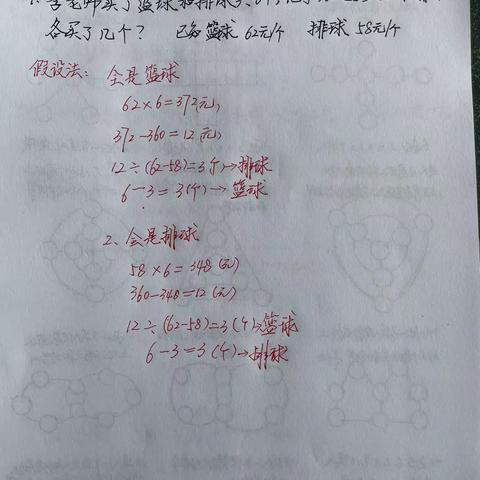 李老师买了篮球和排球共6个
各买了几个? 已知篮球 62元/个 排球 58元/个
假设法: 全是篮球
62×6=372元,
372-360=12元,
12÷(62-58)=3个→排球
6-3=3(个)→篮球
2、全是排球
58×6=348(元)
360-348=12(元)
12÷(62-58)=3(个)→篮球
6-3=3(个)→排球